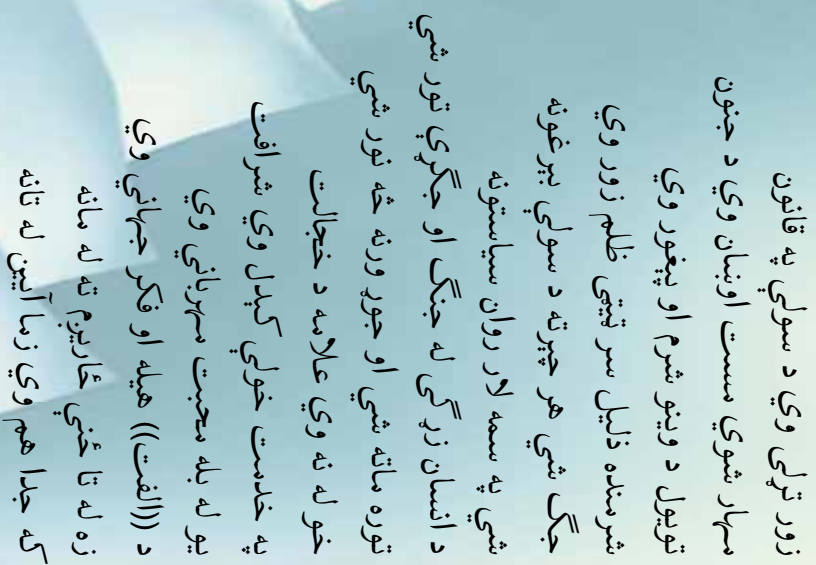 زور تړلی وي د سولې په قانون
مهار شوي مست اوښان وي د جنون
تویول د وینو شرم او پیغور وي
شرمنده ذلیل سر ټیټی ظلم زور وي
جګ شي هر چیرته د سولې بیرغونه
شي په سمه لار روان سیاستونه
د انسان زړګی له جنګ او جګړې تور شي
توره ماته شي او جوړ ورنه څه نور شي
خوله نه وي علامه د خجالت
په خدمت خولې کیدل وي شرافت
یو له بله محبت مهرباني وي
د ((الفت)) هیله او فکر جهاني وي
زه له تا ځنې ځاریږم ته له مانه
که جدا هم وي زما آیین له تانه